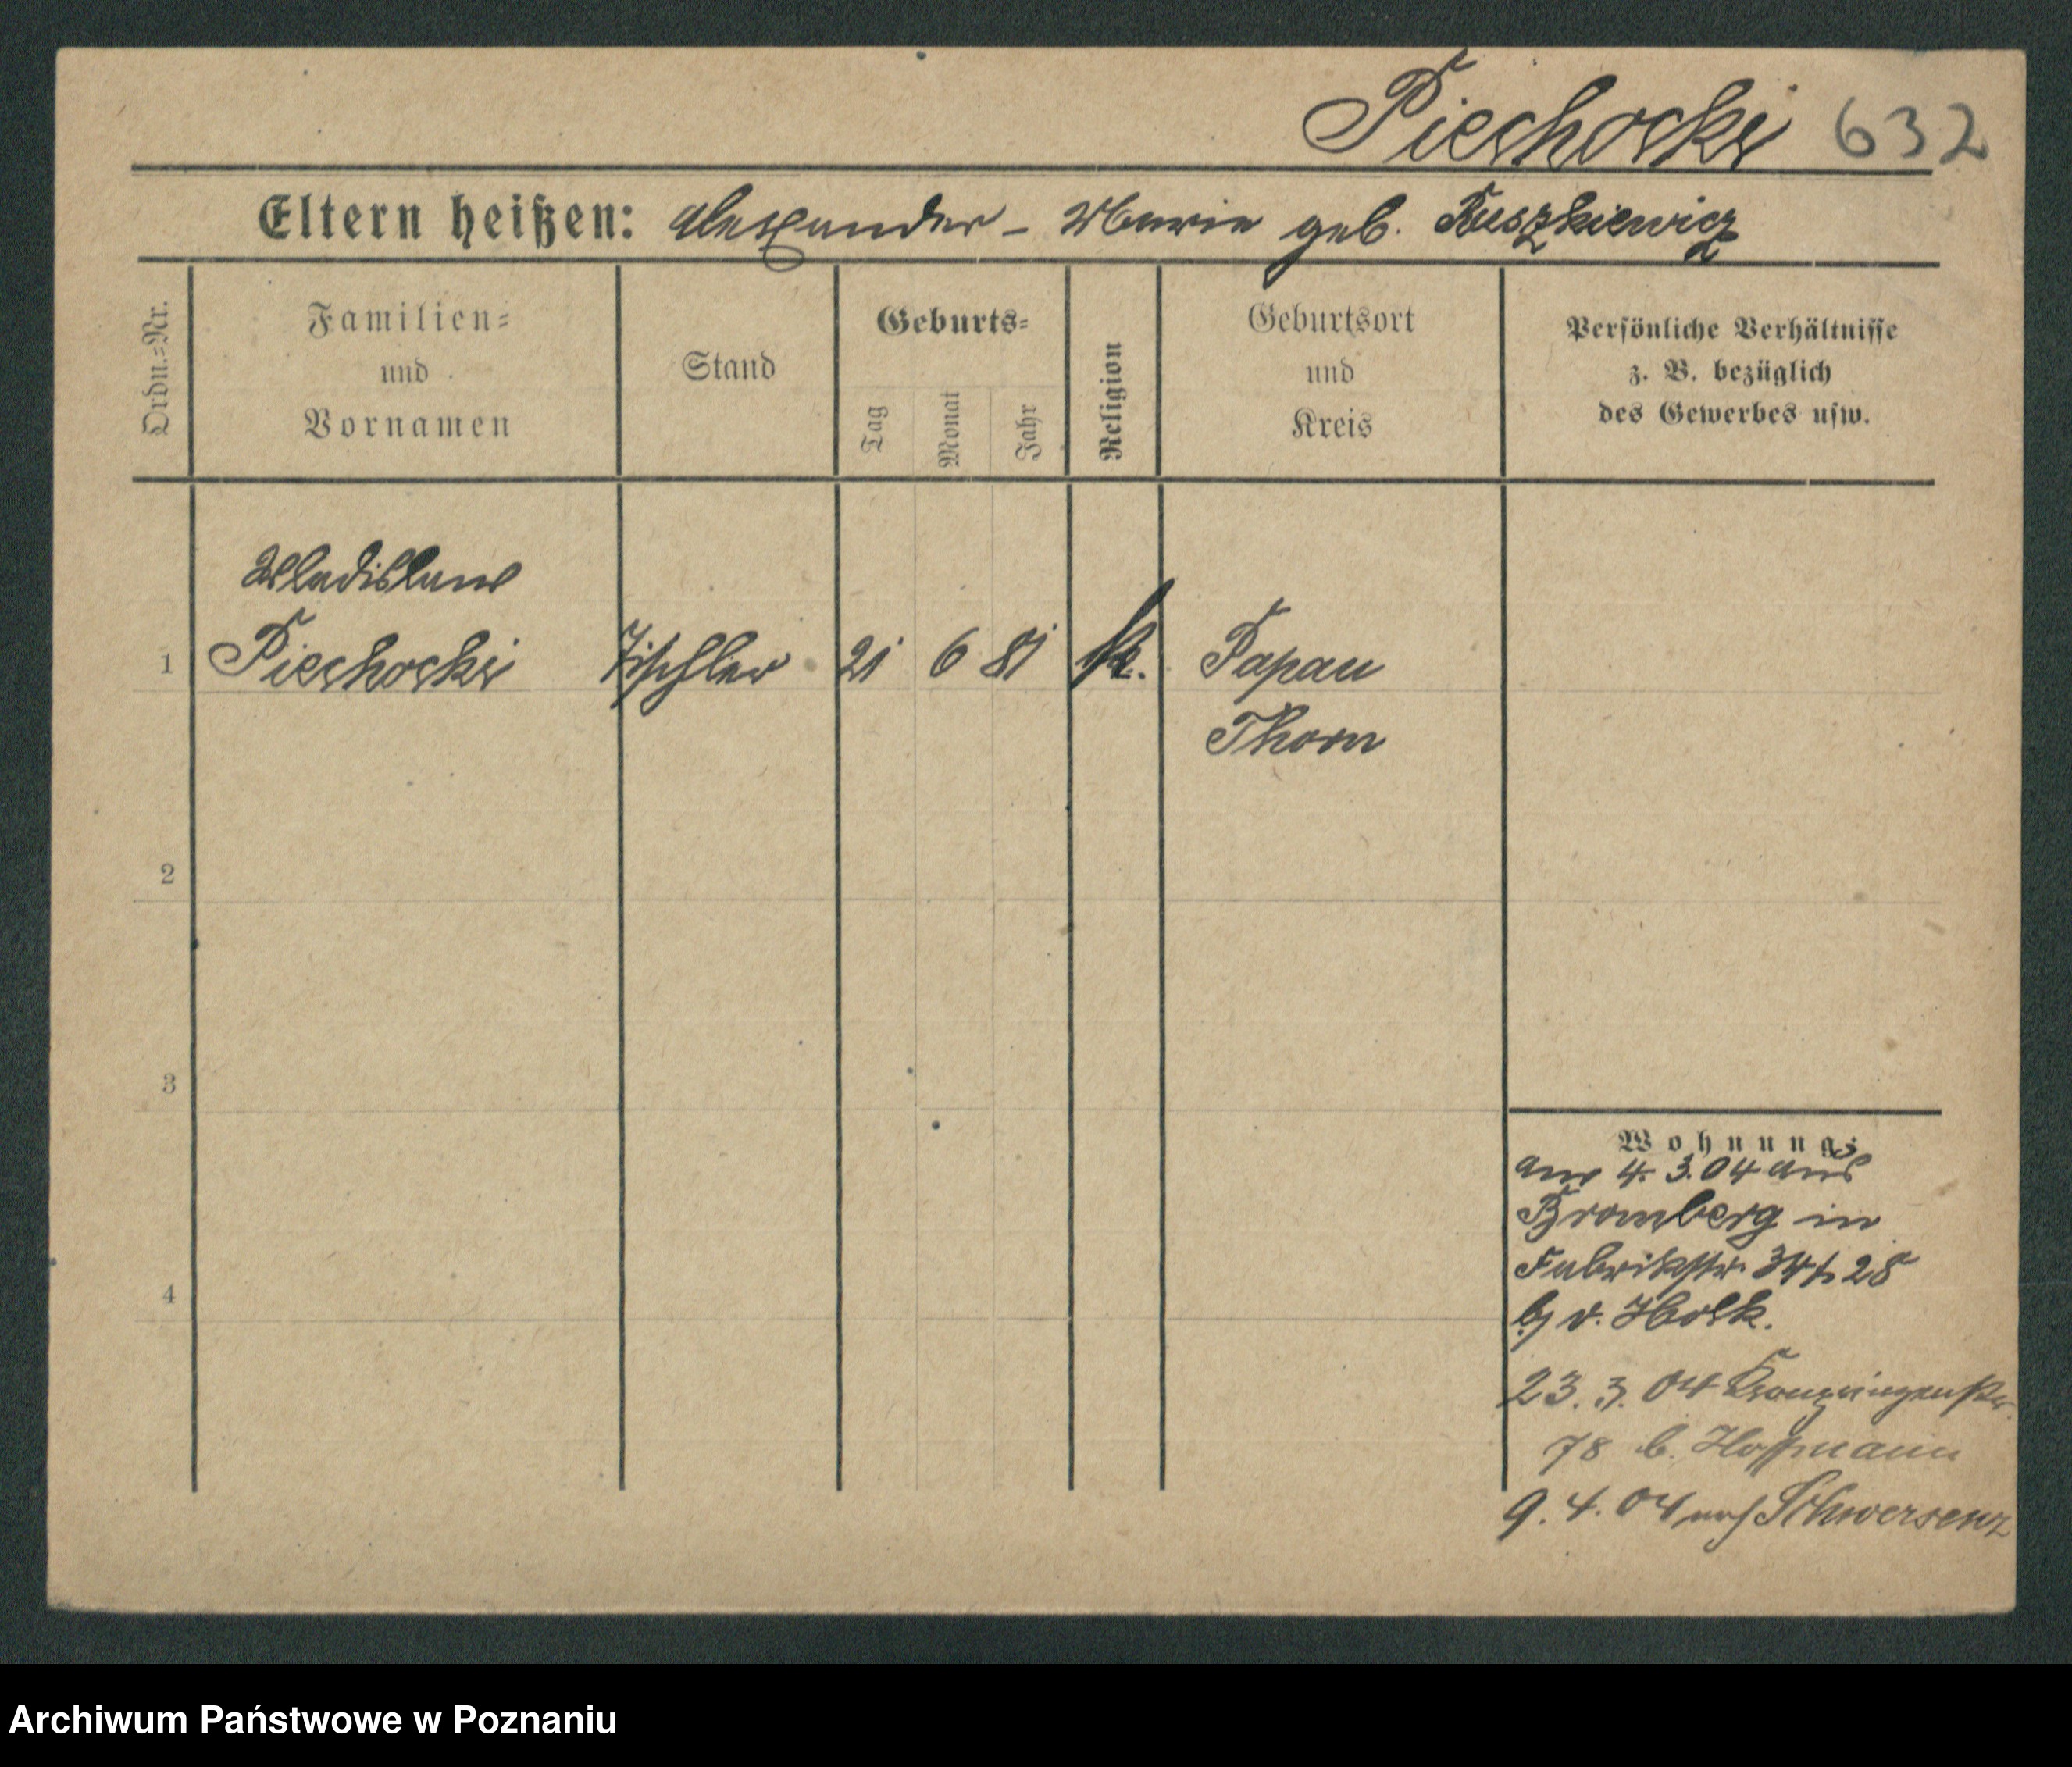 Piechocki 632
Eltern heißen: Alexander – Marie geb. Ruszkiewicz
Ordn.=Nr.
Familien=
und
Vornamen
Stand
Geburts=
Tag
Monat
Jahr
Religion
Geburtsort
und
Kreis
Persönliche Verhältnisse
z. B. bezüglich
des Gewerbes usw.
Wladislaus
1 Piechocki Tischler 21 6 81 k. Papau
Thorn
2
3
4
Wohnung
am 4. 3. 04 aus
Bromberg in
Fabrikstr. 28
b/ v. Holk.
23. 3. 04 Kronprinzenstr.
78 b. Hoffmann
9. 4. 04 nach Schwersenz
Archiwum Państwowe w Poznaniu